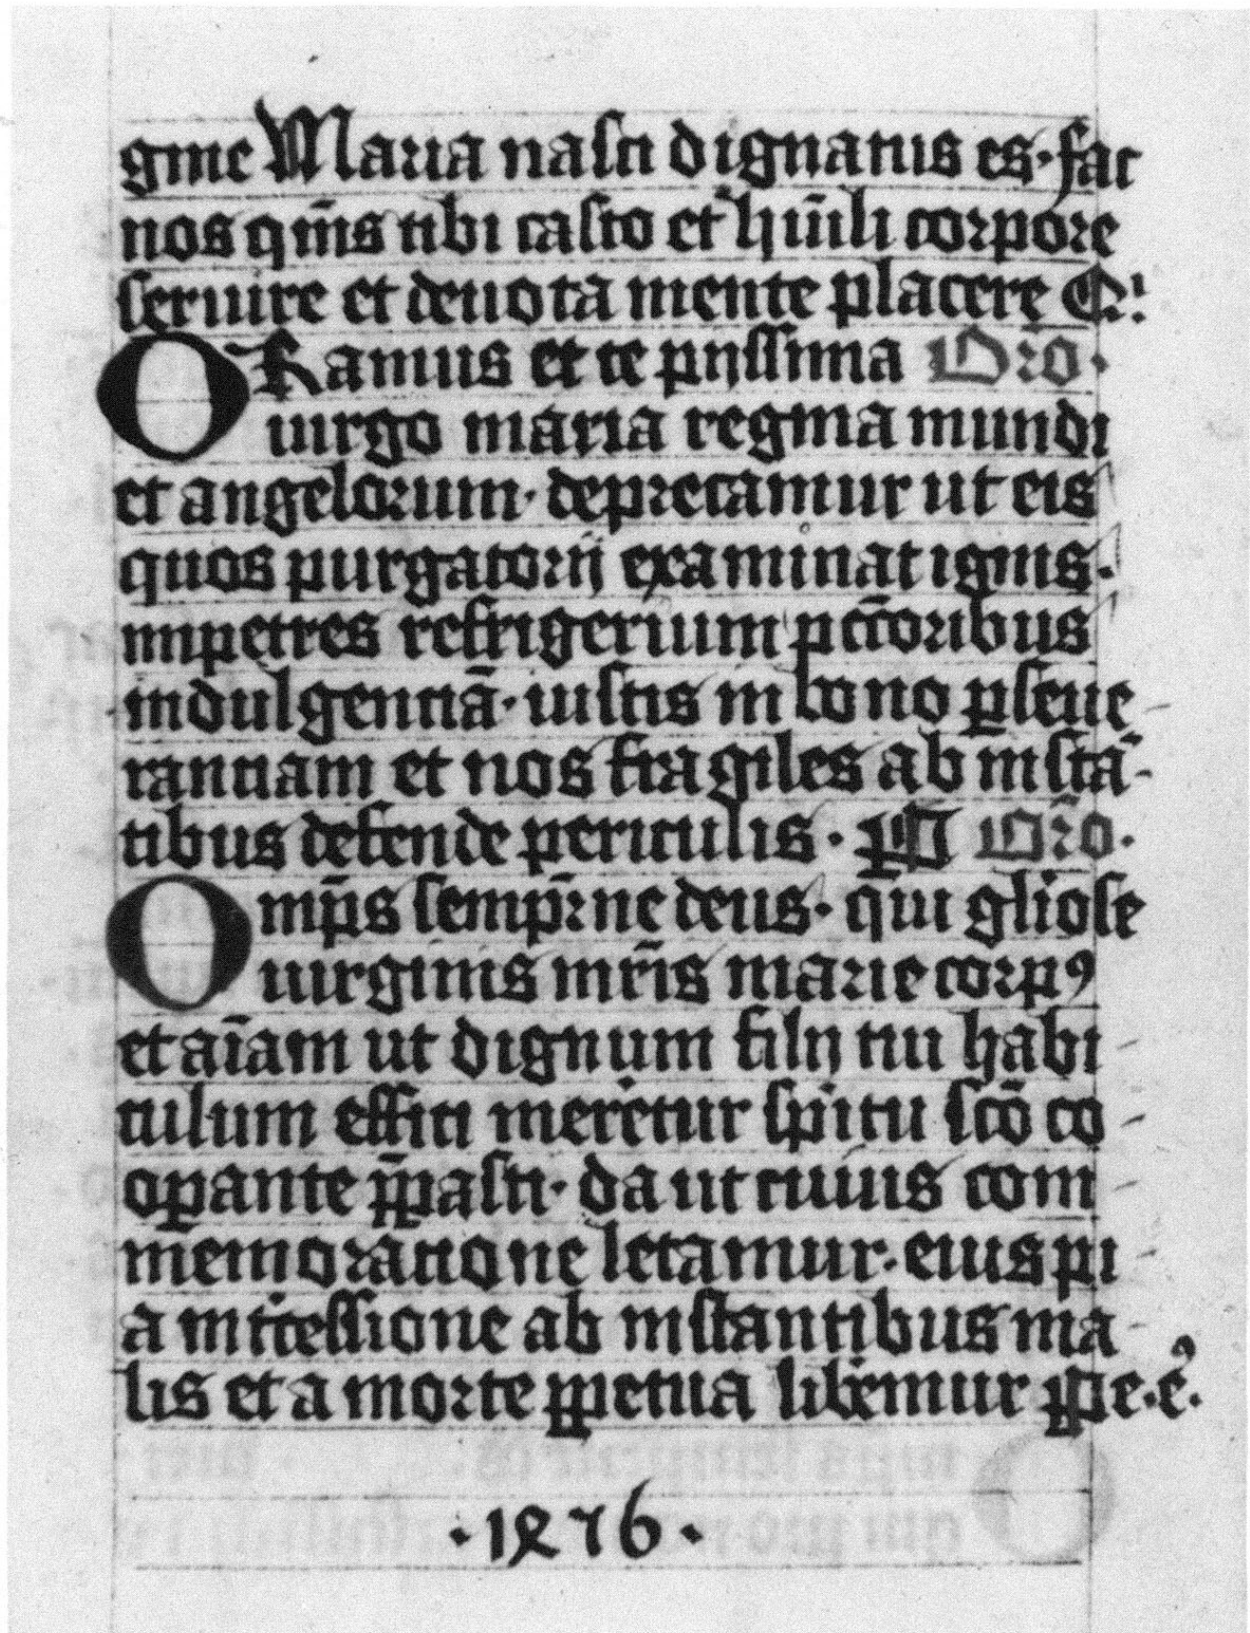 gine Maria nasci dignatus es· fac
nos qm̄s tibi casto et hūili corpore
seruire et deuota mente placere
ORamus et te pijssima Or̄o·
uirgo maria regina mundi
et angelorum· deprecamur ut eis
quos purgatorij examinat ignis·
impetres refrigerium pcc̄oribus
indulgenciā· iustis in bono ꝑseue
ranciam et nos fragiles ab instā
tibus defende periculis· Or̄o·
Omp̄s semp̄rne deus· qui gl̄iose
uirginis mr̄is marie corpꝰ
et aīam ut dignum filij tui habi
tulum effici meretur sp̄itu sc̄o co
oꝑante p̄ꝑasti· da ut cuius com
memoratione letamur· eius pi
a int̄cessione ab instantibus ma
lis et a morte ꝑpetua lib̄emur
·1476·